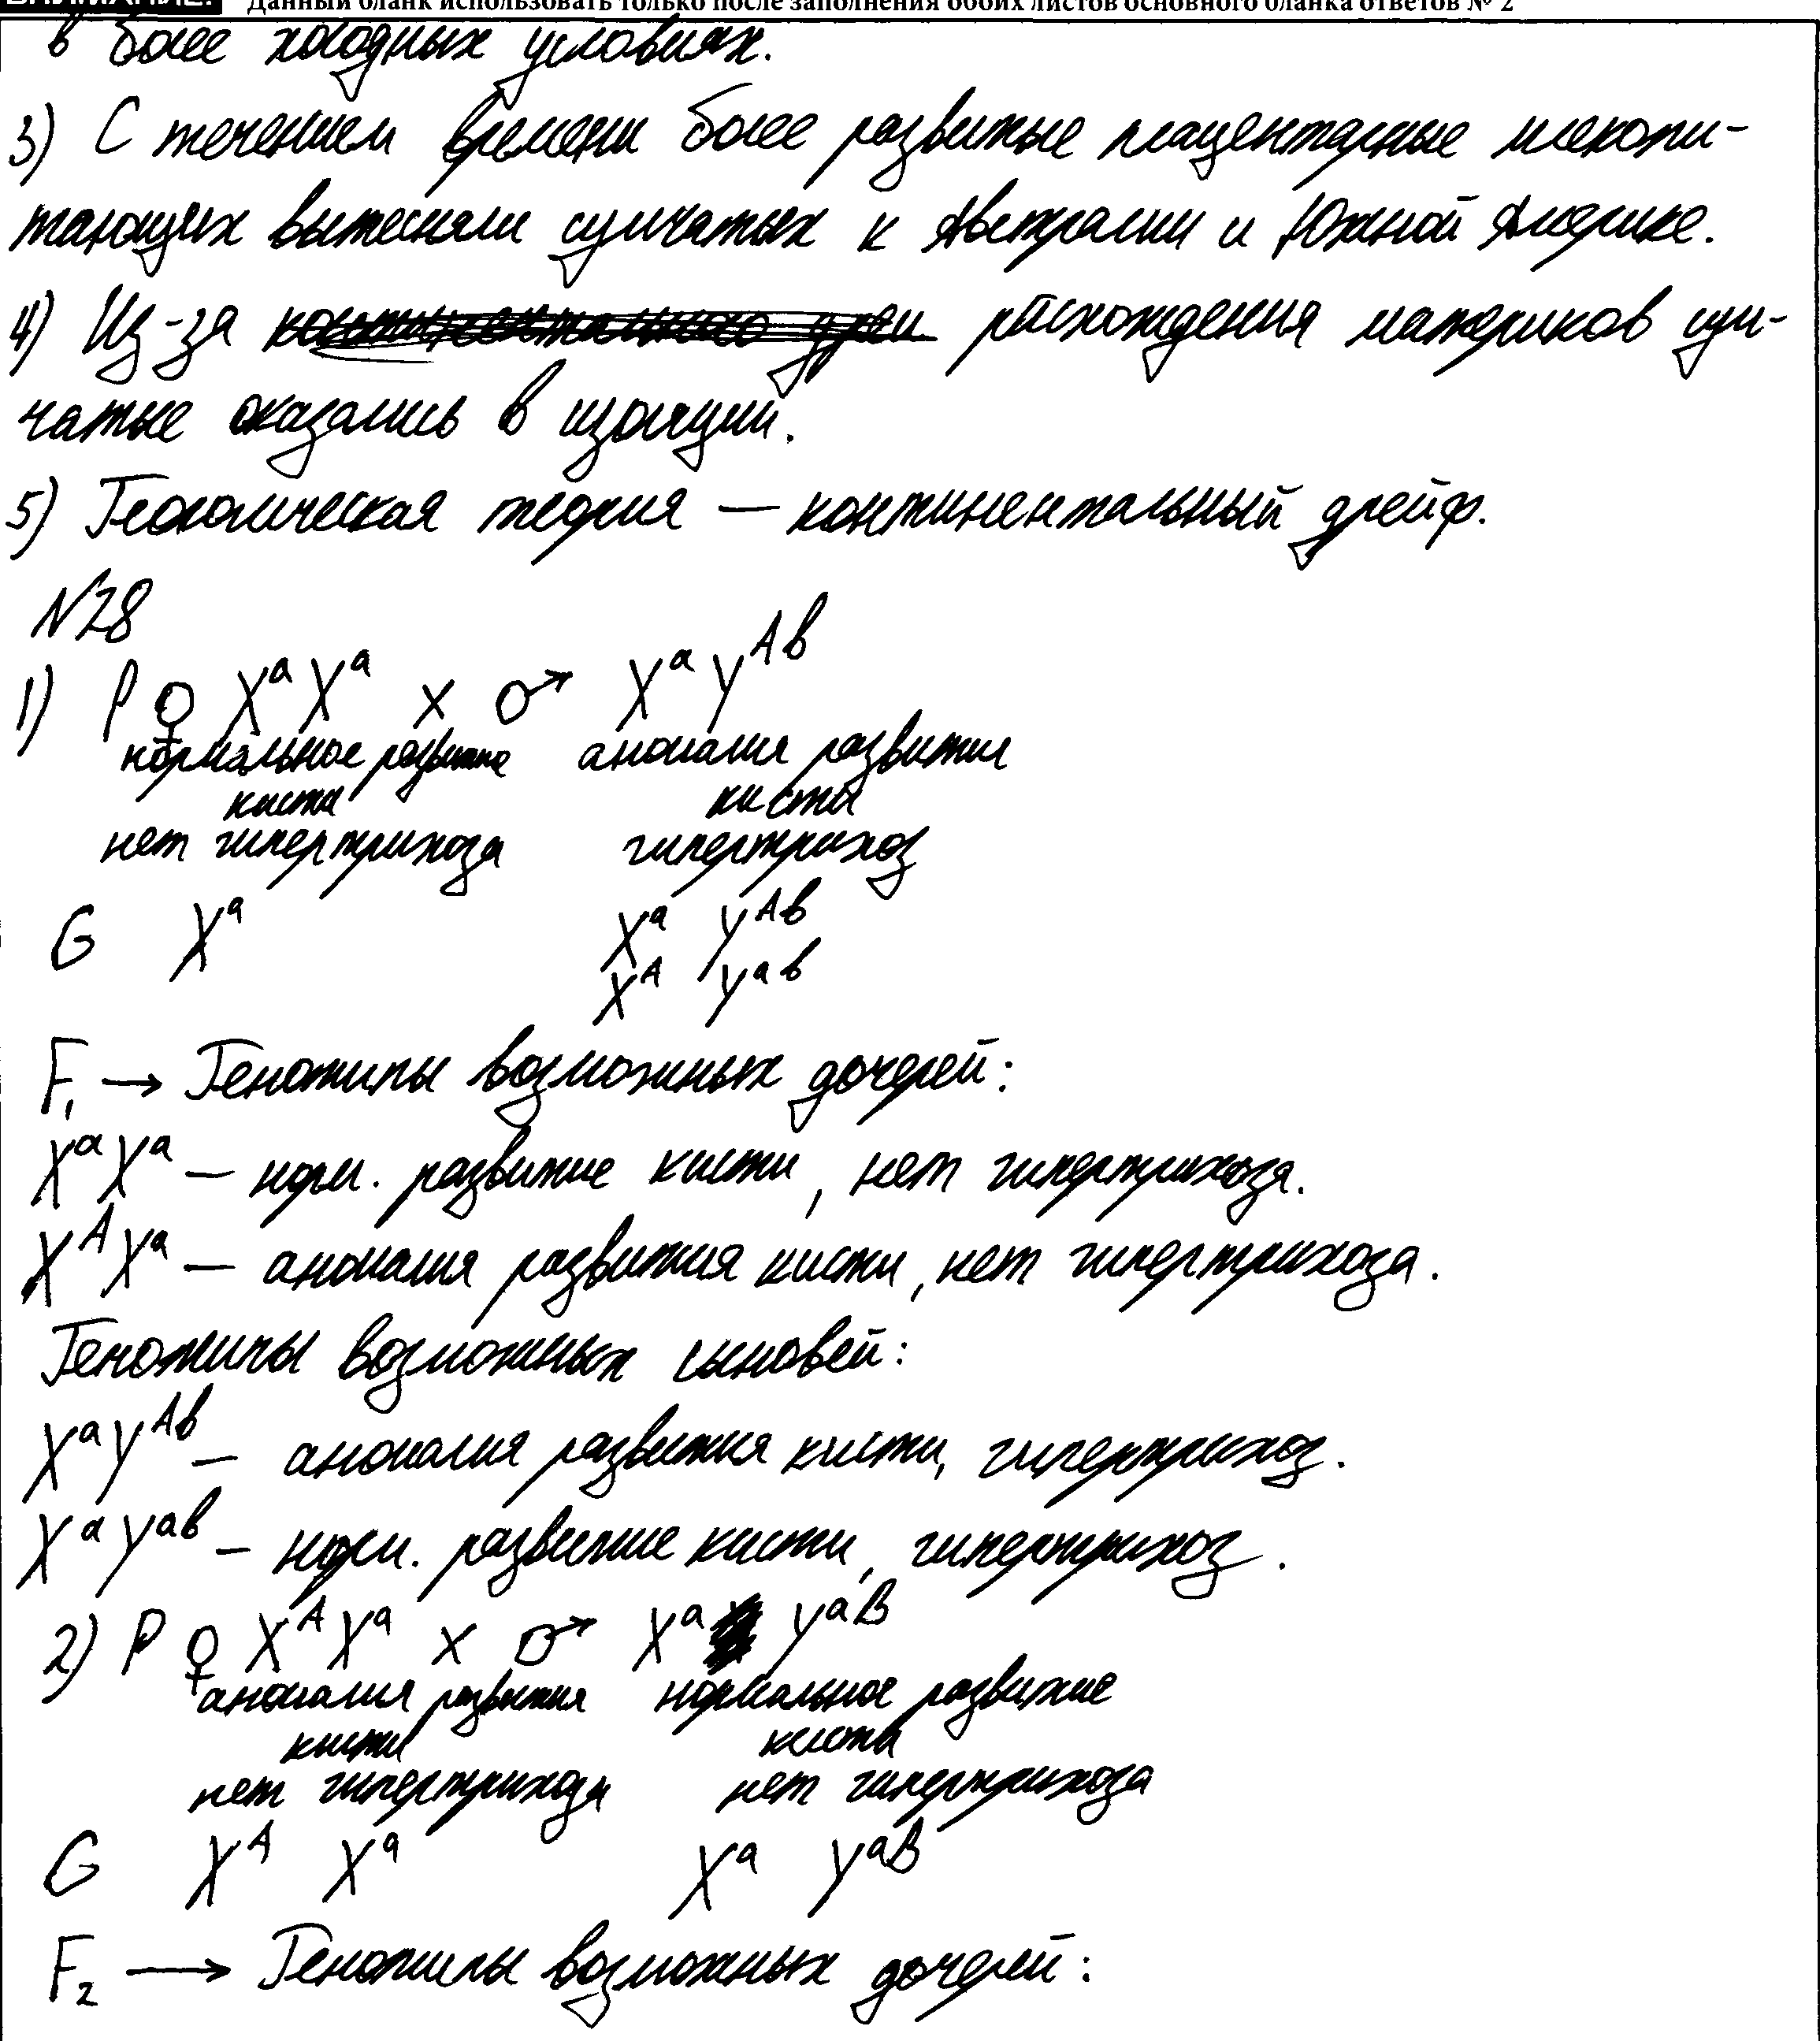 ВНИМАНИЕ! Данный бланк использовать только после заполнения обоих листов основного бланка ответов № 2
в более холодных условиях.
3) С течением времени более развитые плацентарные млекопи-
тающих вытесняли сумчатых к Австралии и Южной Америке.
4) Из-за расхождения материков сум-
чатые оказались в изоляции.
5) Геологическая теория — континентальный дрейф.
N28
1) P ♀ XᵃXᵃ x ♂ XᵃYᴬᵇ
нормальное развитие аномалия развития
кисти кисти
нет гипертрихоза гипертрихоз
G Xᵃ Xᵃ Yᴬᵇ
Xᴬ Yᵃᵇ
F₁ → Генотипы возможных дочерей:
XᵃXᵃ — норм. развитие кисти, нет гипертрихоза.
XᴬXᵃ — аномалия развития кисти, нет гипертрихоза.
Генотипы возможных сыновей:
XᵃYᴬᵇ — аномалия развития кисти, гипертрихоз.
XᵃYᵃᵇ — норм. развитие кисти, гипертрихоз.
2) P ♀ XᴬXᵃ x ♂ Xᵃ Yᵃᴮ
аномалия развития нормальное развитие
кисти кисти
нет гипертрихоза нет гипертрихоза
G Xᴬ Xᵃ Xᵃ Yᵃᴮ
F₂ → Генотипы возможных дочерей: